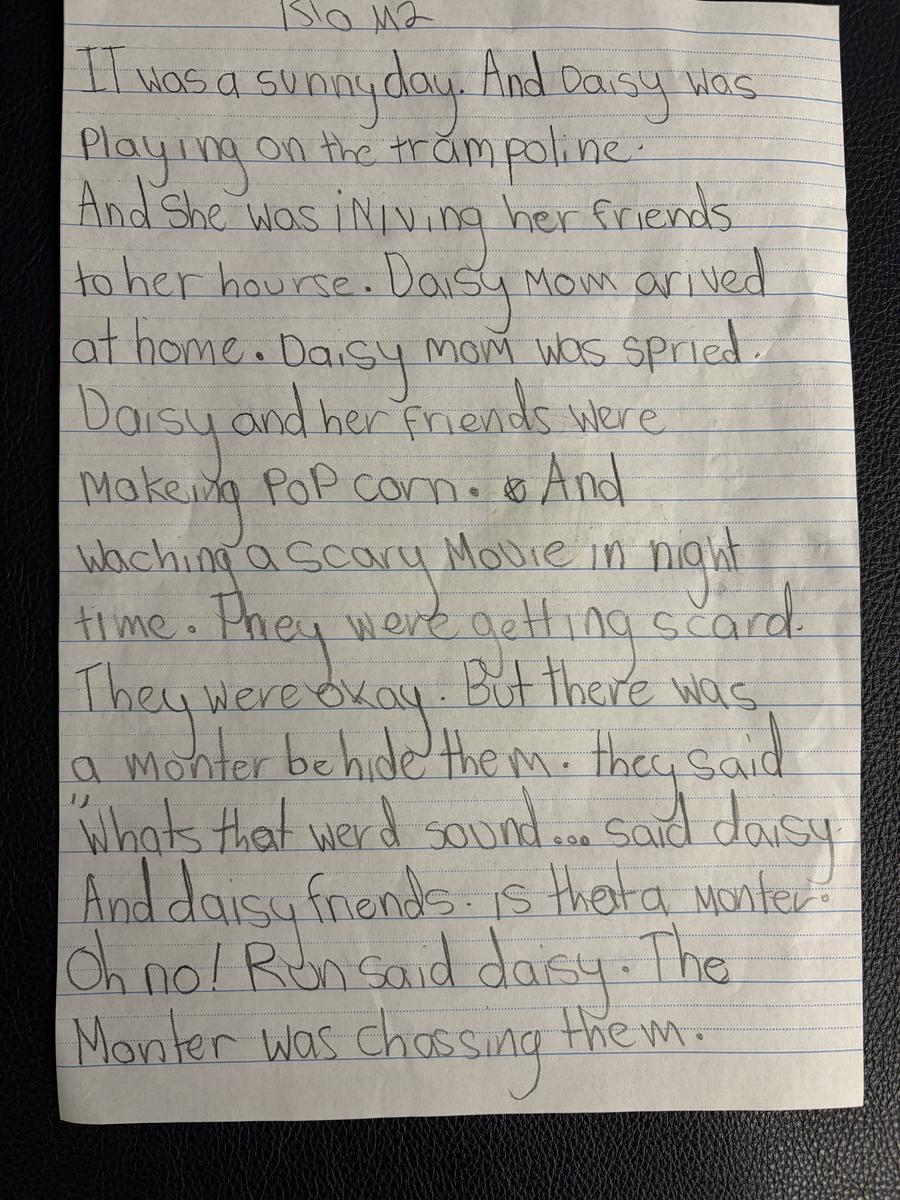 ISlo M2
IT was a sunny day. And Daisy was
Playing on the trampoline.
And She was iNiving her friends
to her hourse. Daisy Mom arived
at home. Daisy mom was spried.
Daisy and her friends were
Makeing PoP corn. And
Waching a scary Movie in night
time. They were getting scard.
They were okay. But there was
a monter behide them. they said
"Whats that werd sound... said daisy.
And daisy friends. is that a Monter.
Oh no! Run said daisy. The
Monter was chassing them.